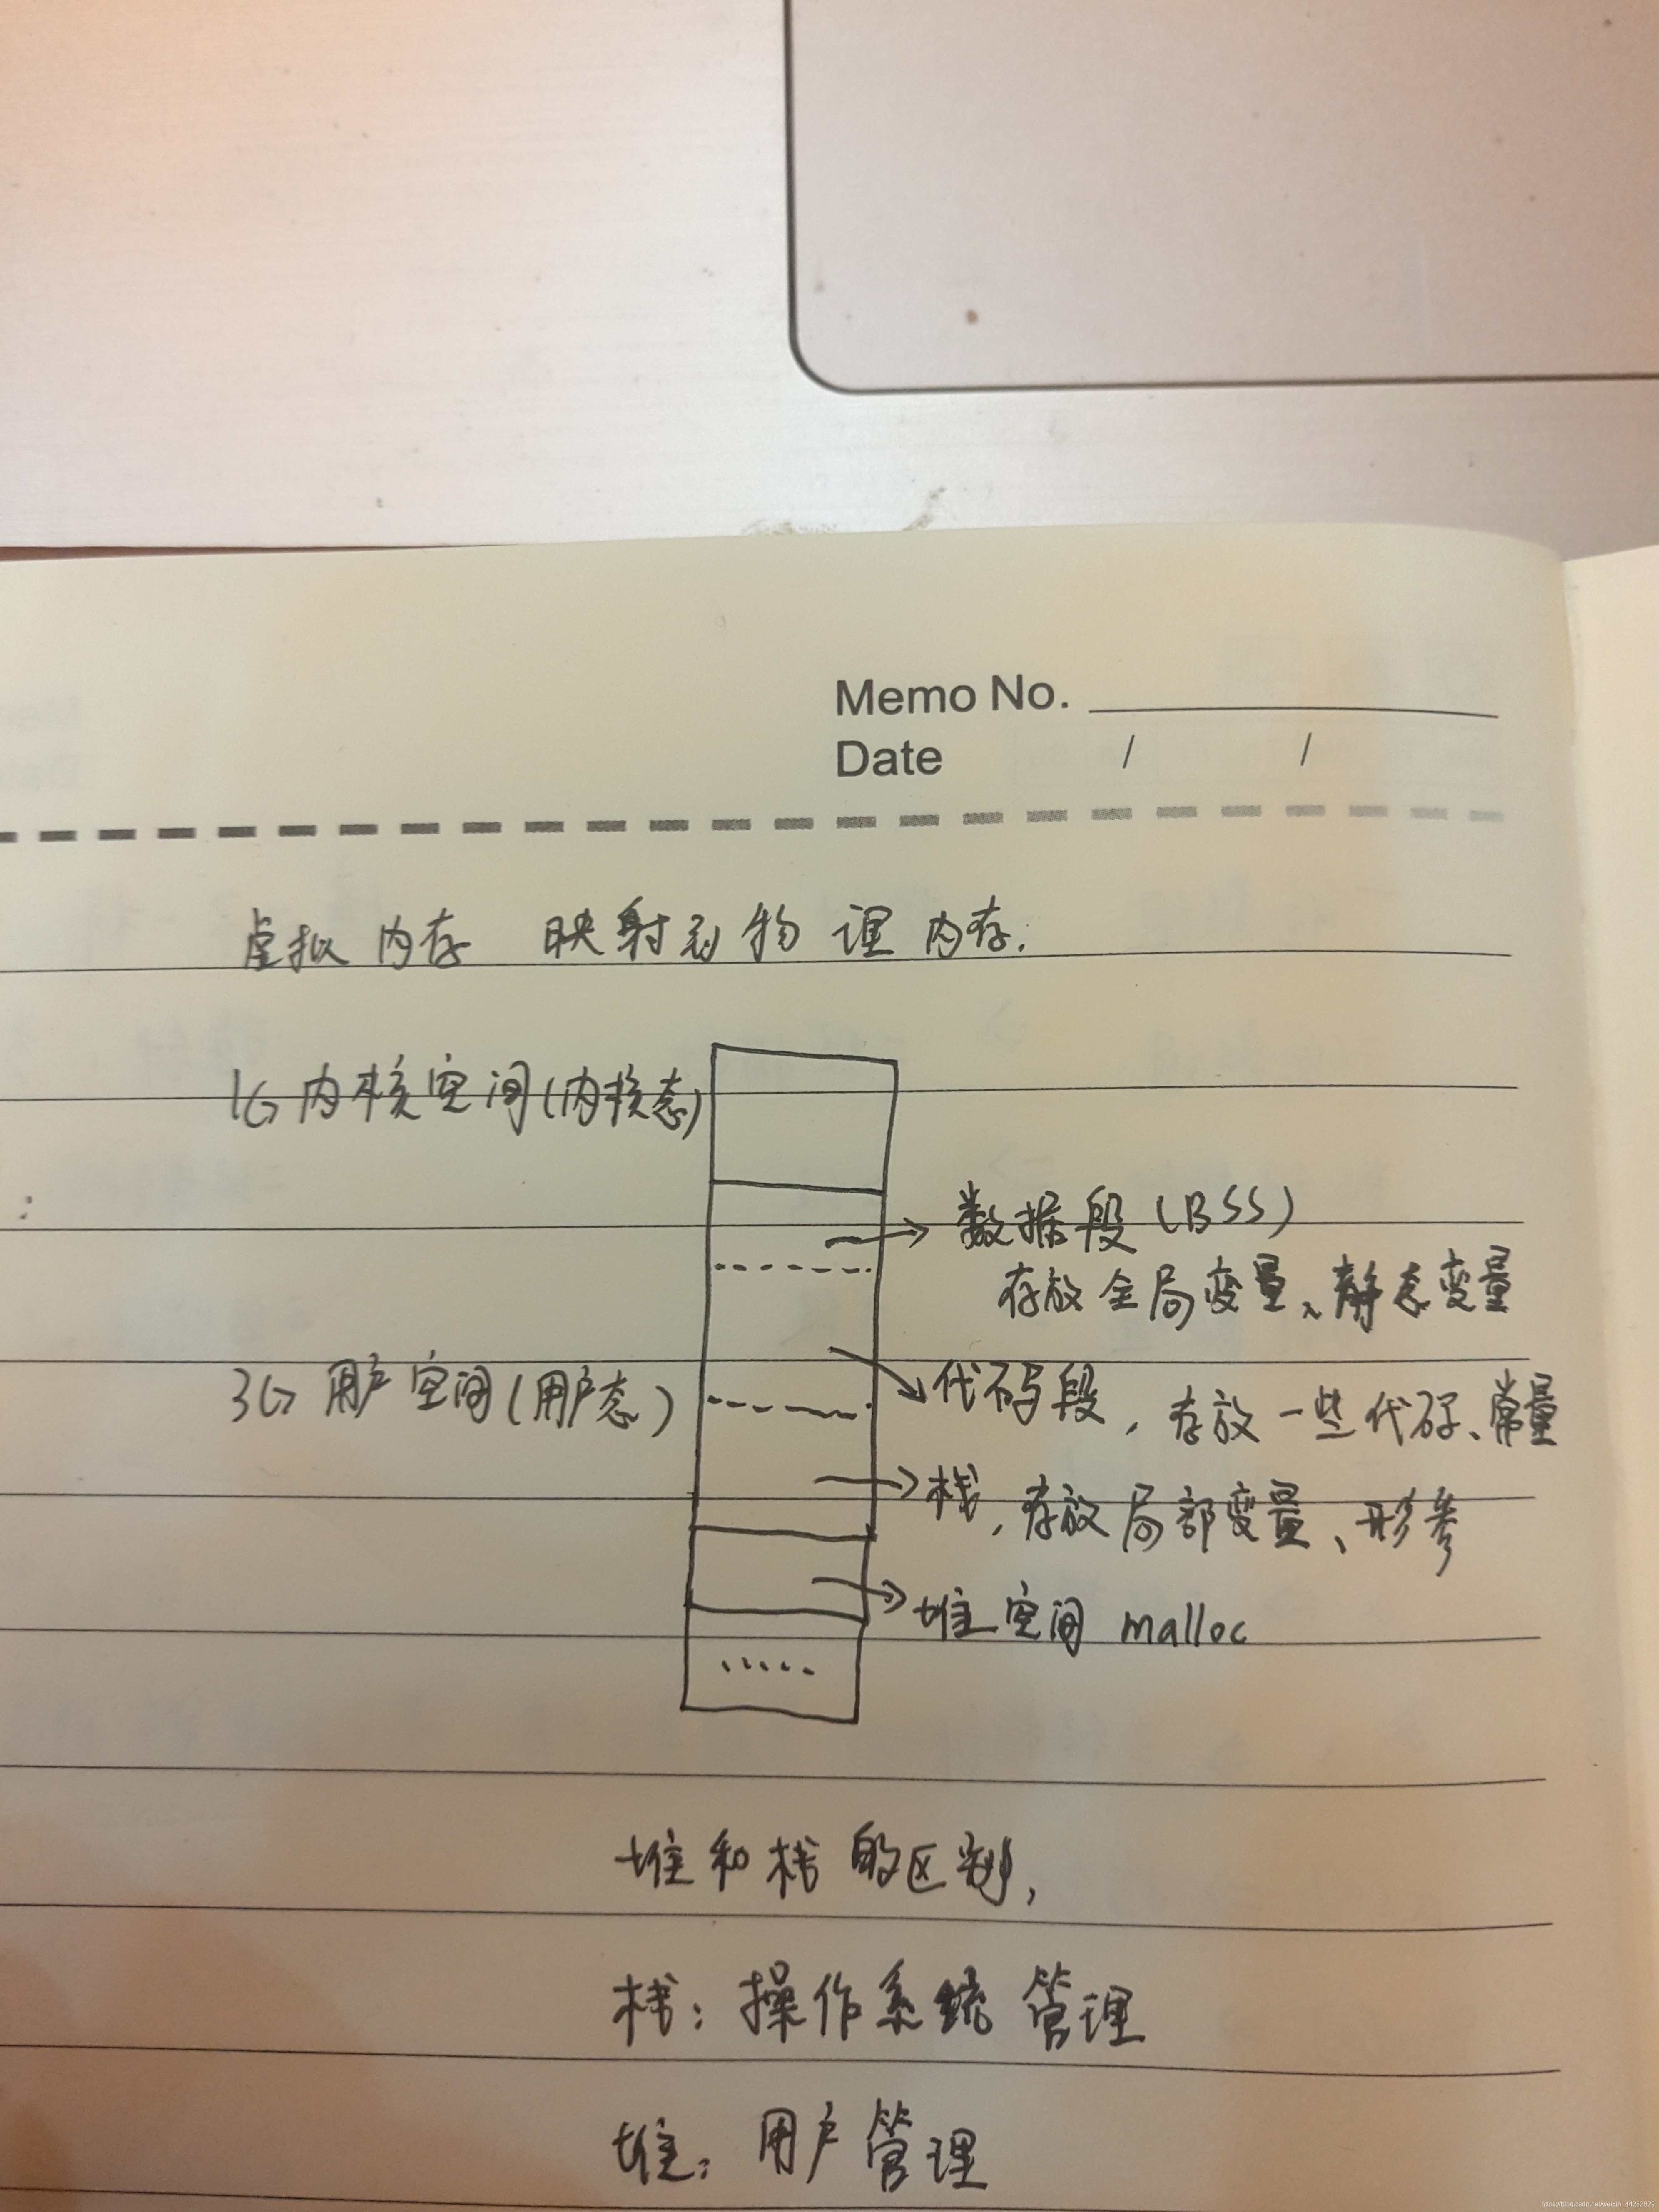 Memo No.
Date / /
虚拟内存 映射到物理内存.
1G内核空间(内核态)
数据段(BSS)
存放全局变量、静态变量
3G用户空间(用户态)
代码段,存放一些代码、常量
栈,存放局部变量、形参
堆空间 malloc
.....
堆和栈的区别,
栈:操作系统管理
堆:用户管理
https://blog.csdn.net/weixin_44282629